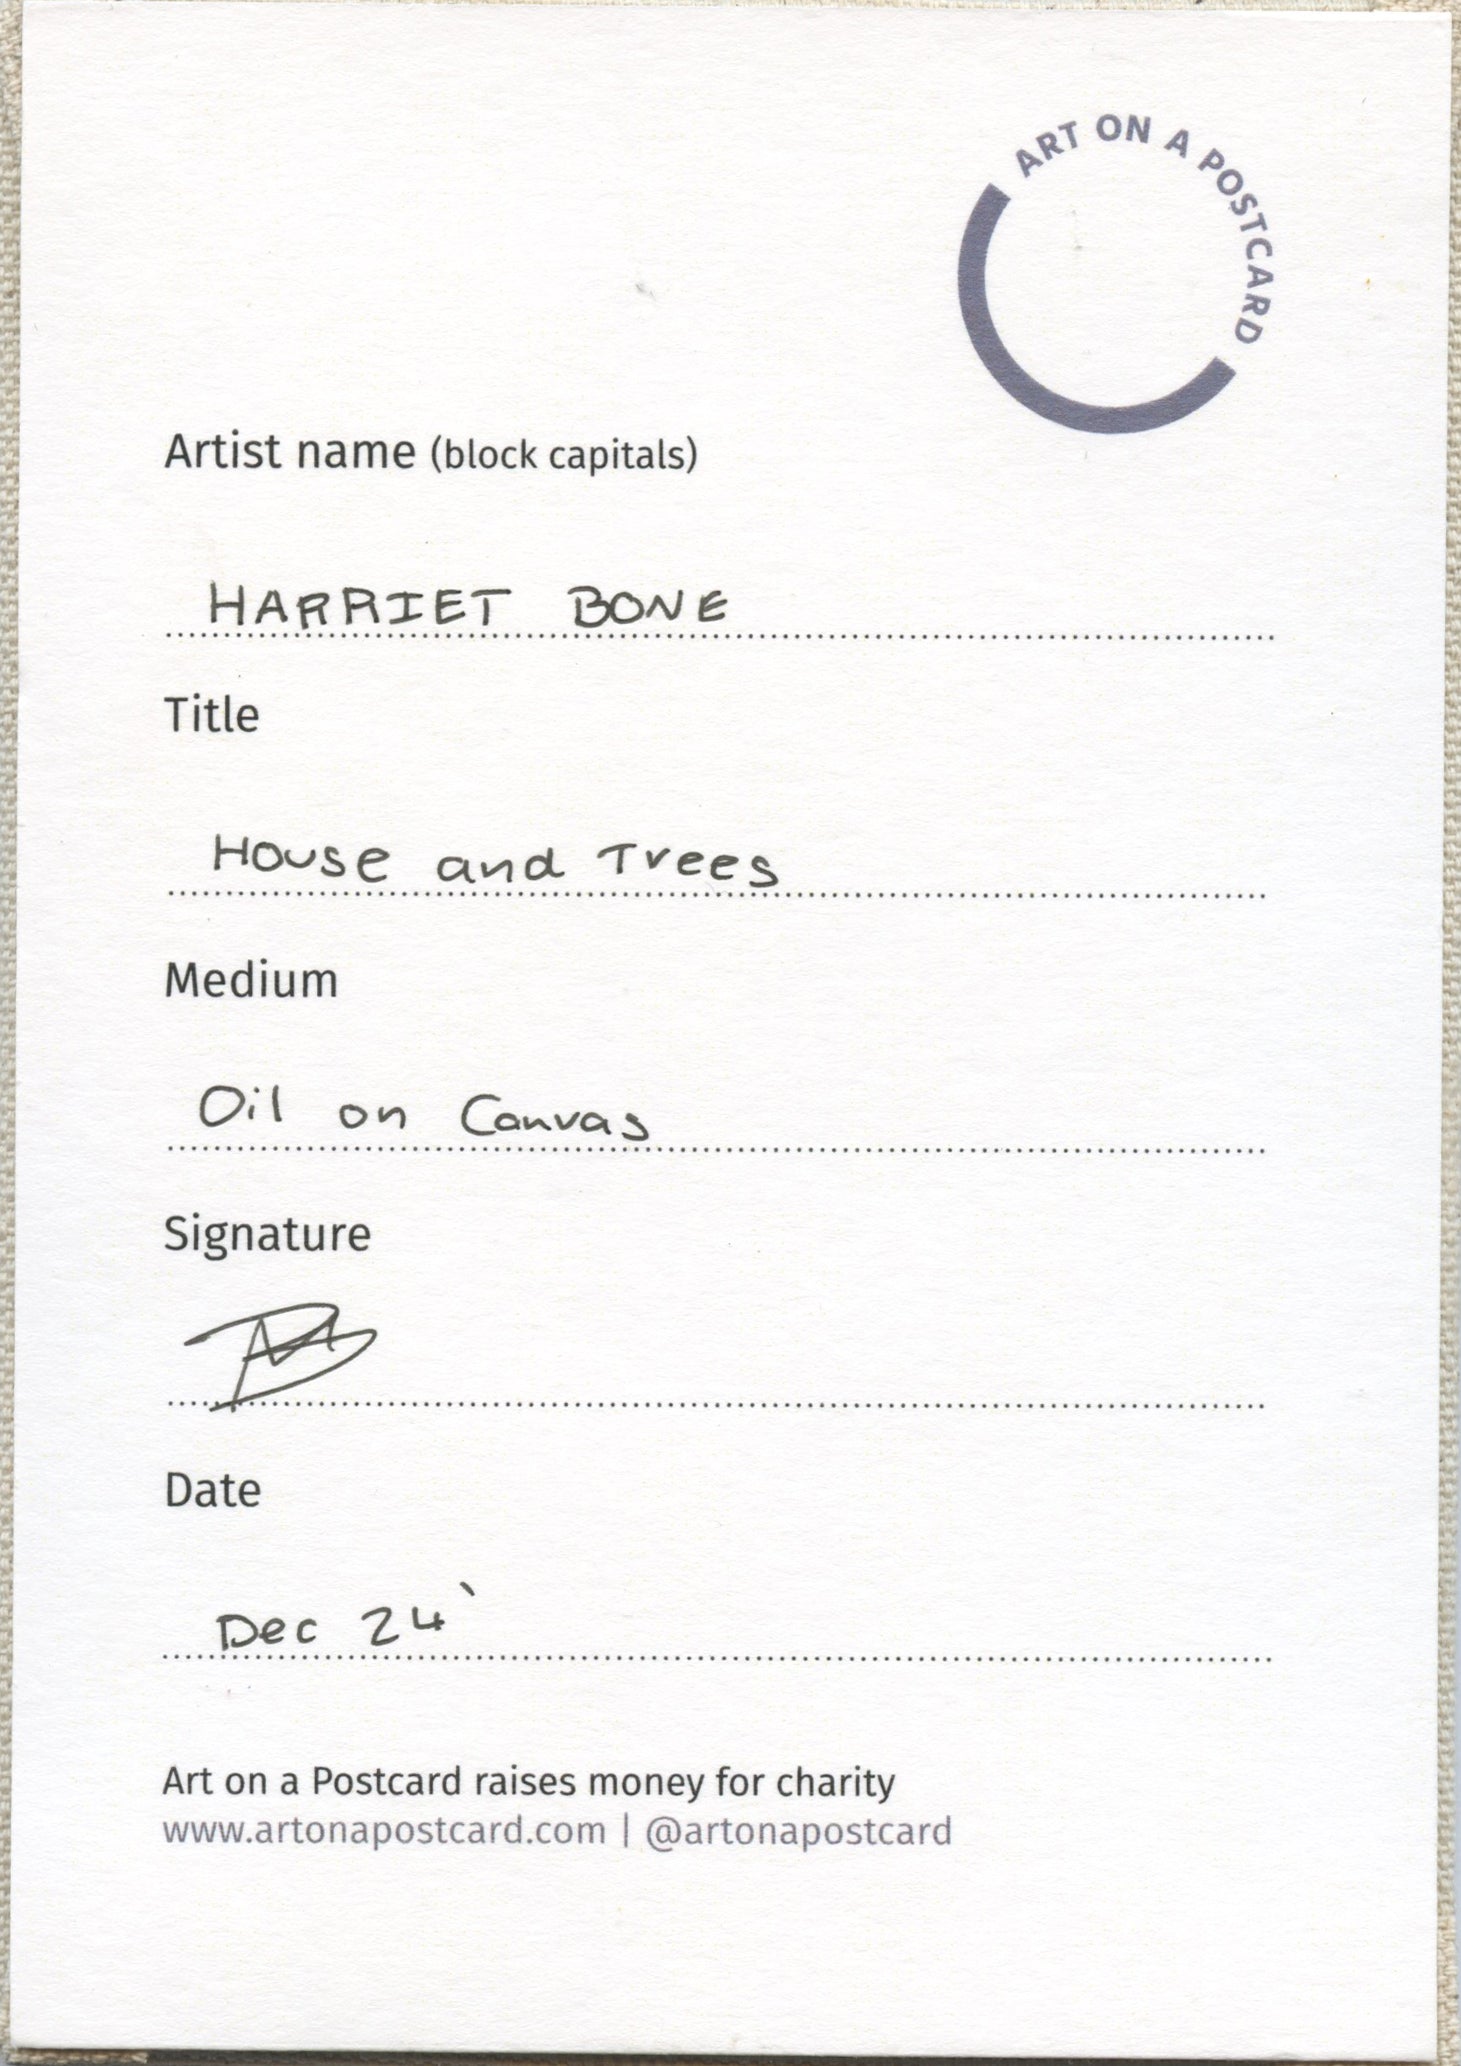 ART ON A POSTCARD
Artist name (block capitals)
HARRIET BONE
Title
House and Trees
Medium
Oil on Canvas
Signature
Date
Dec 24`
Art on a Postcard raises money for charity
www.artonapostcard.com | @artonapostcard